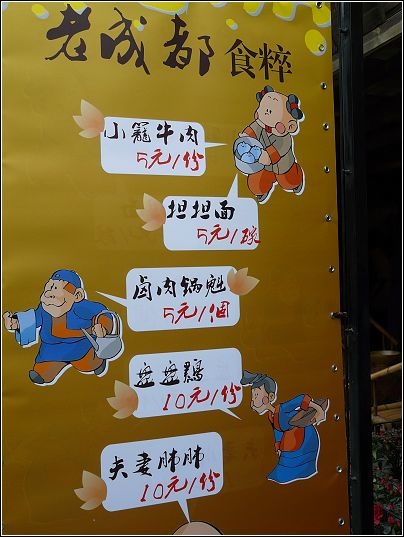 老成都食粹
小籠牛肉
5元/份
担担面
5元/碗
卤肉锅魁
5元/個
盘盘鷄
10元/份
夫妻肺肺
10元/份